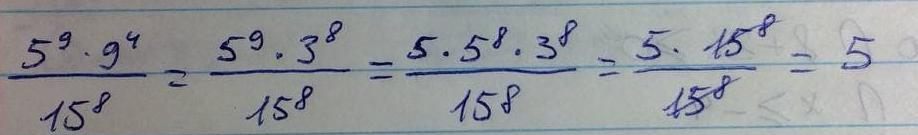 \frac{5^9 \cdot 9^4}{15^8} = \frac{5^9 \cdot 3^8}{15^8} = \frac{5 \cdot 5^8 \cdot 3^8}{15^8} = \frac{5 \cdot 15^8}{15^8} = 5